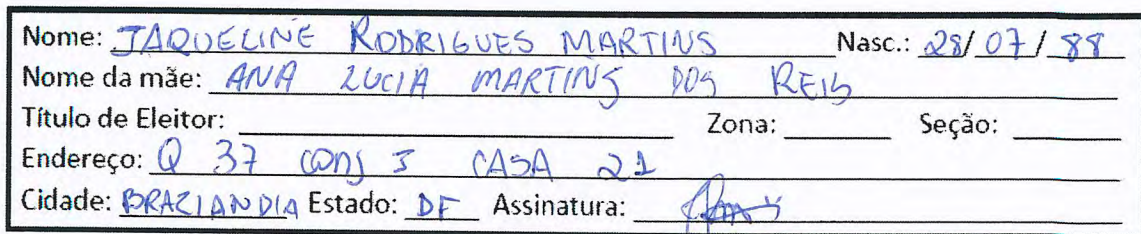 Nome: JAQUELINE RODRIGUES MARTINS Nasc.: 28/07/88
Nome da mãe: ANA LUCIA MARTINS DOS REIS
Título de Eleitor: Zona: Seção:
Endereço: Q 37 CONJ J CASA 21
Cidade: BRAZIANDIA Estado: DF Assinatura: